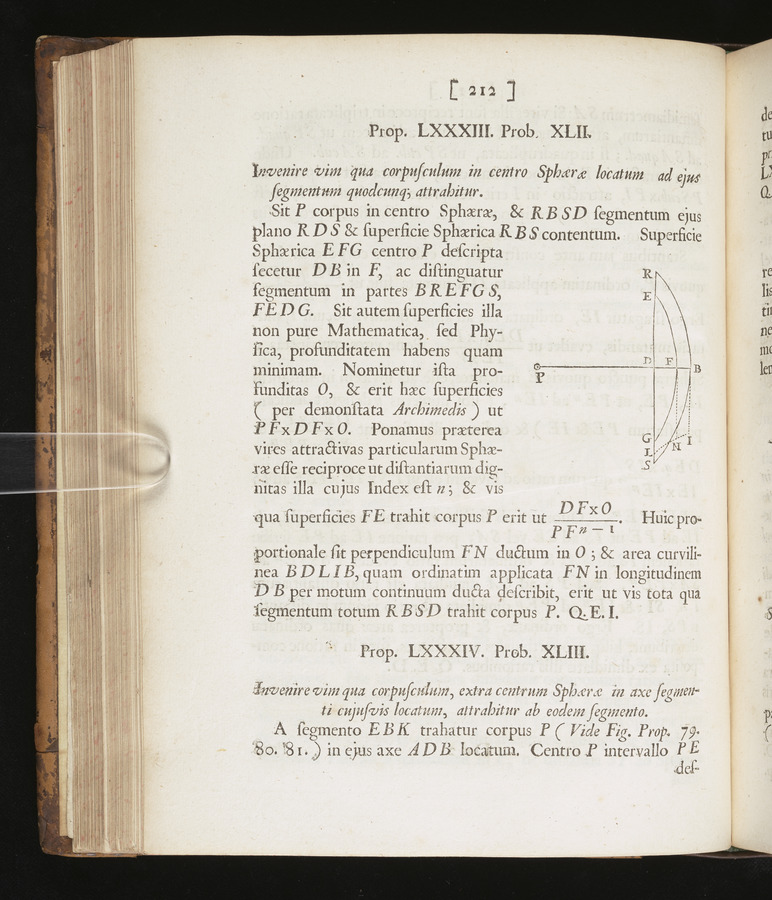 [ 212 ]
Prop. LXXXIII. Prob. XLII.
Invenire vim qua corpuſculum in centro Sphæræ locatum ad ejus
ſegmentum quodcunq; attrahitur.
Sit P corpus in centro Sphæræ, & RBSD ſegmentum ejus
plano RDS & ſuperficie Sphærica RBS contentum. Superficie
Sphærica EFG centro P deſcripta
ſecetur DB in F, ac diſtinguatur
ſegmentum in partes BREFGS,
FEDG. Sit autem ſuperficies illa
non pure Mathematica, ſed Phy-
ſica, profunditatem habens quam
minimam. Nominetur iſta pro-
funditas O, & erit hæc ſuperficies
( per demonſtata Archimedis ) ut
PF x DF x O. Ponamus præterea
vires attractivas particularum Sphæ-
ræ eſſe reciproce ut diſtantiarum dig-
nitas illa cujus Index eſt n; & vis
qua ſuperficies FE trahit corpus P erit ut DF x O / PFⁿ⁻¹. Huic pro-
portionale ſit perpendiculum FN ductum in O ; & area curvili-
nea BDLIB, quam ordinatim applicata FN in longitudinem
DB per motum continuum ducta deſcribit, erit ut vis tota qua
ſegmentum totum RBSD trahit corpus P. Q.E.I.
R
E
D F B
P
G
L N I
S
Prop. LXXXIV. Prob. XLIII.
Invenire vim qua corpuſculum, extra centrum Sphæræ in axe ſegmen-
ti cujuſvis locatum, attrahitur ab eodem ſegmento.
A ſegmento EBK trahatur corpus P ( Vide Fig. Prop. 79.
80. 81. ) in ejus axe ADB locatum. Centro P intervallo PE
deſ-